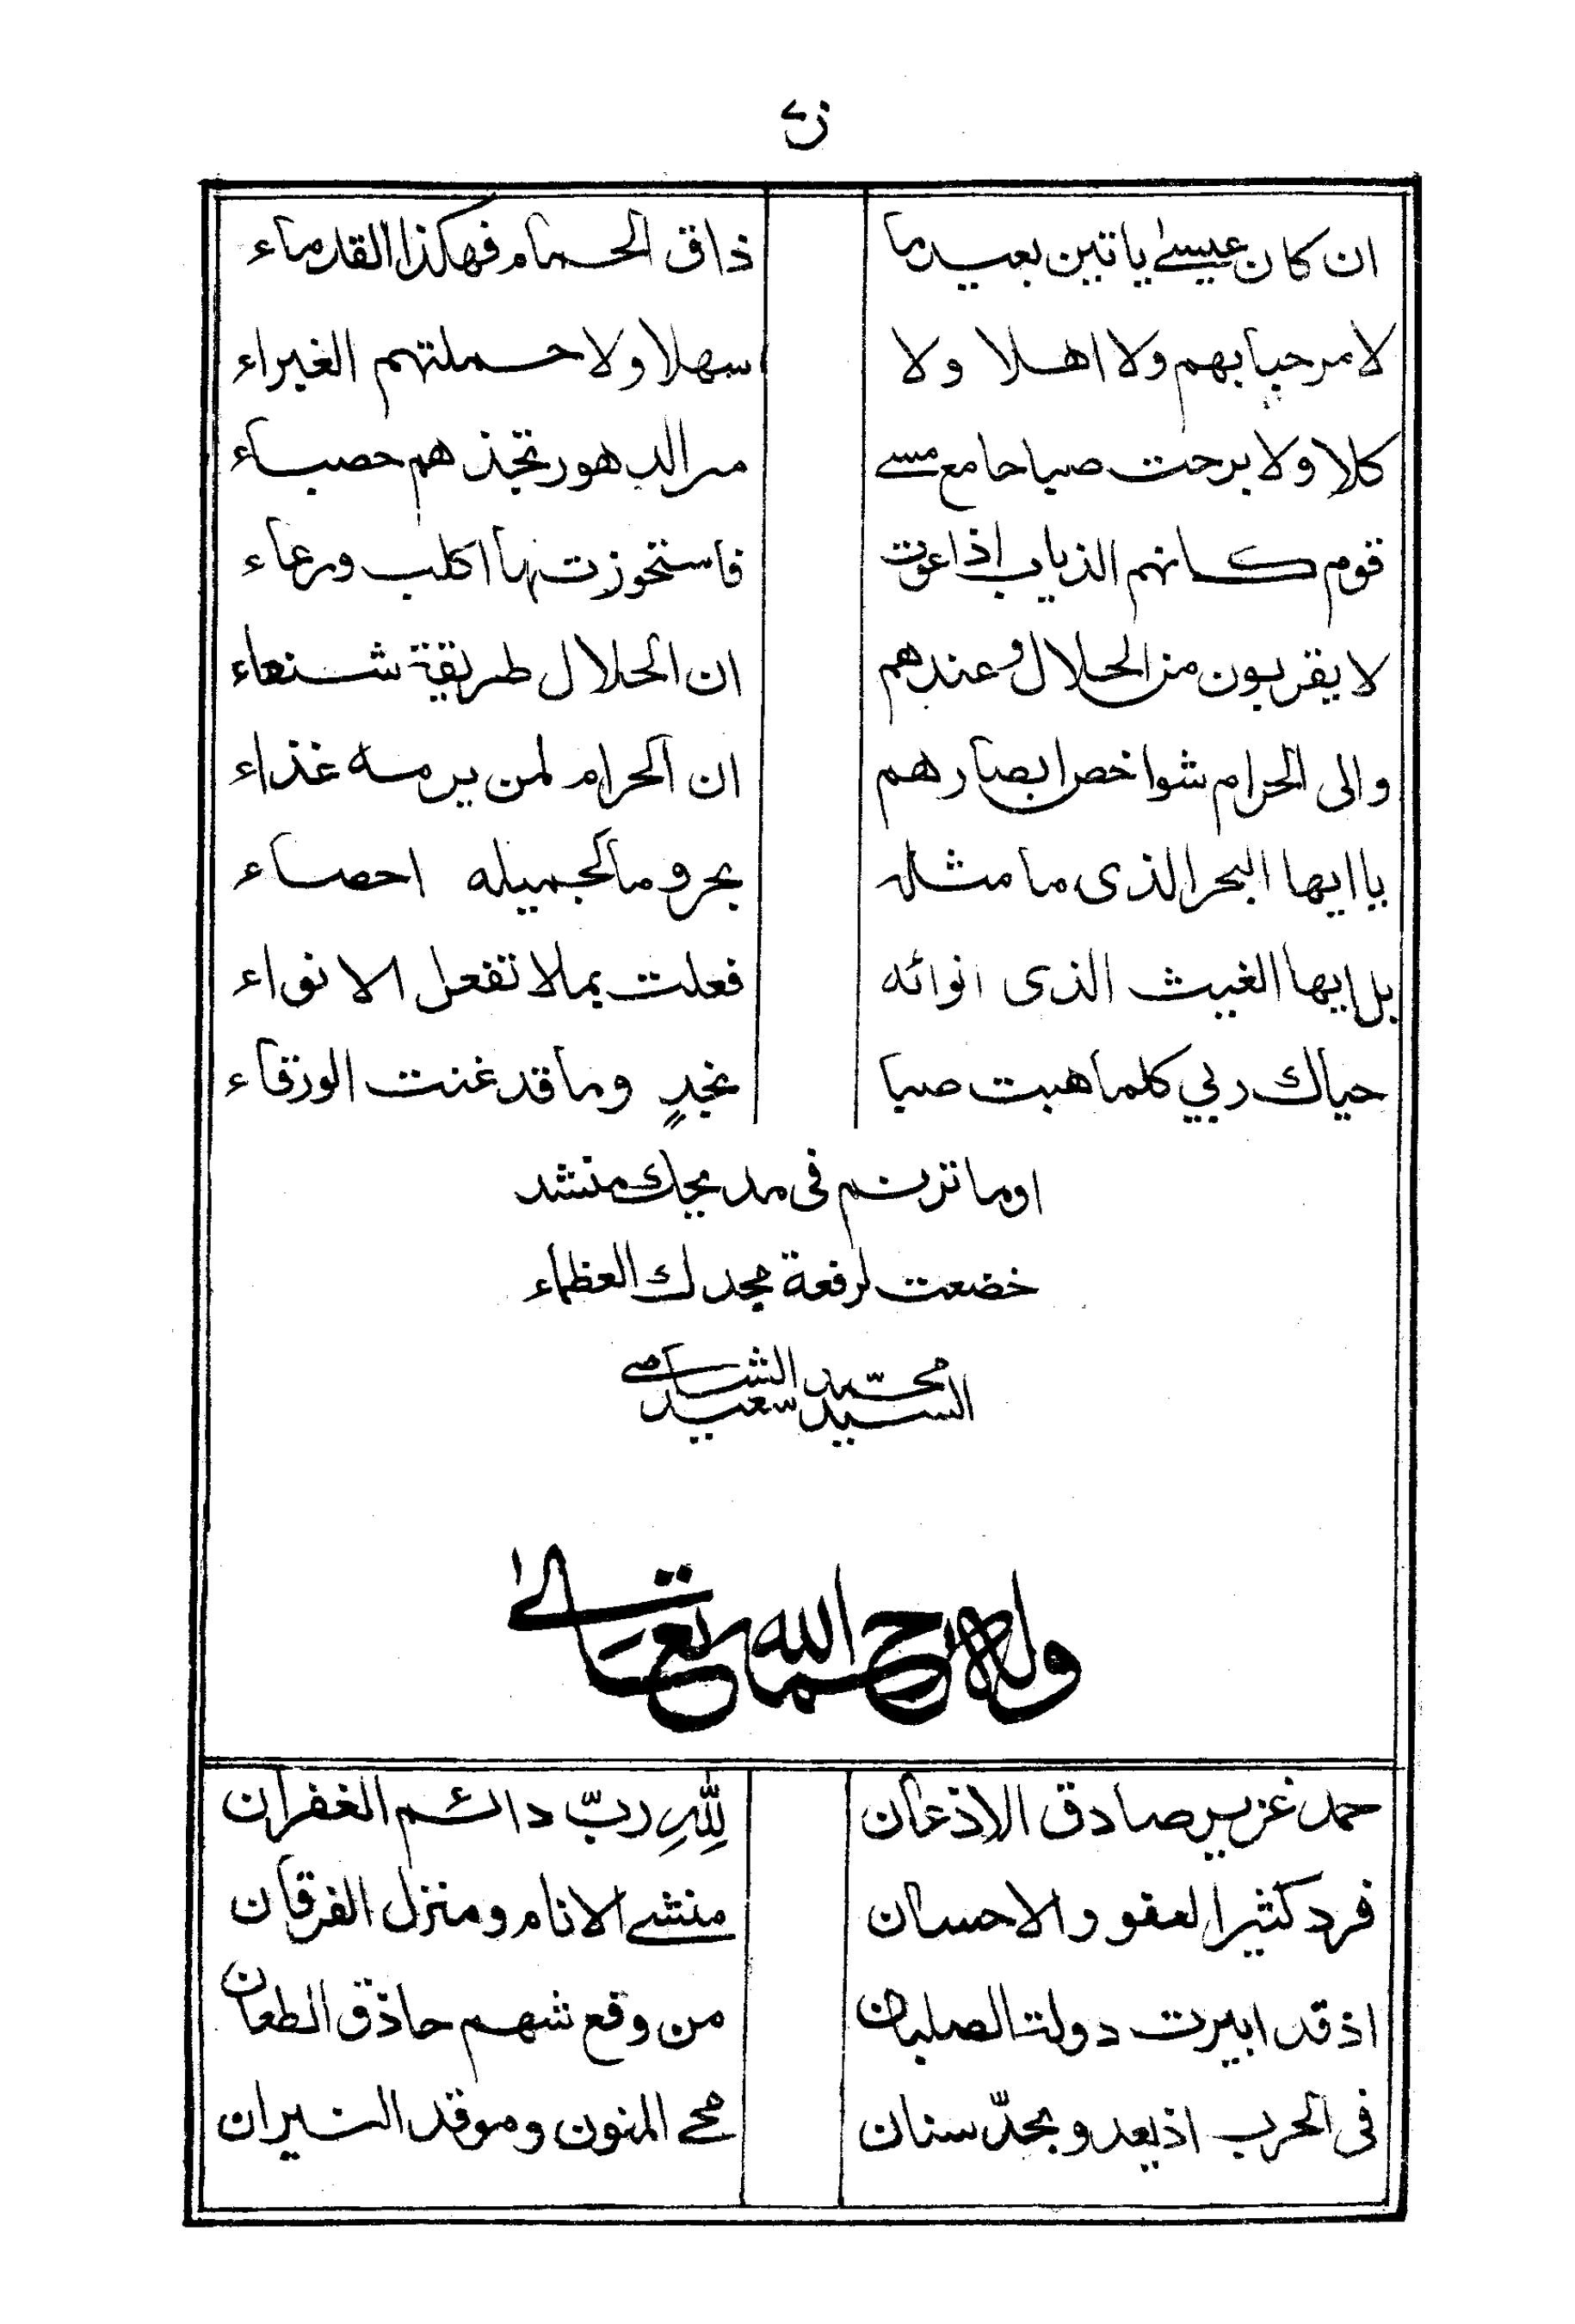 ز
ان كان عيسى ياتين بعيد ما ذاق الحمام فهكذا القدماء
لا مرحبا بهم ولا اهلا ولا سهلا ولا حملتهم الغبراء
كلا ولا برحت صباحا مع مسى مر الدهور تجذهم حصباء
قوم كانهم الذياب اذا عوت فاستحوزتها اكلب ورعاء
لا يقربون من الحلال وعندهم ان الحلال طريقة شنعاء
والى الحرام شواخص ابصارهم ان الحرام لمن يرمه غذاء
يا ايها البحر الذى ما مثله بحر وما لجميله احصاء
بل ايها الغيث الذى انوائه فعلت بما لا تفعل الانواء
حياك ربي كلما هبت صبا نجدٍ وما قد غنت الورقاء
او ما ترنم فى مديحك منشد
خضعت لرفعة مجدك العظماء
السيد محمّد سعيد الشامى
وله رحمه الله تعالى
حمد غزير صادق الاذعان للّهِ ربّ دائم الغفران
فرد كثير العفو والاحسان منشى الانام ومنزل الفرقان
اذ قد ابيرت دولت الصلبان من وقع شهم حاذق الطعان
فى الحرب اذ يعدو بحدّ سنان محى المنون وموقد النيران